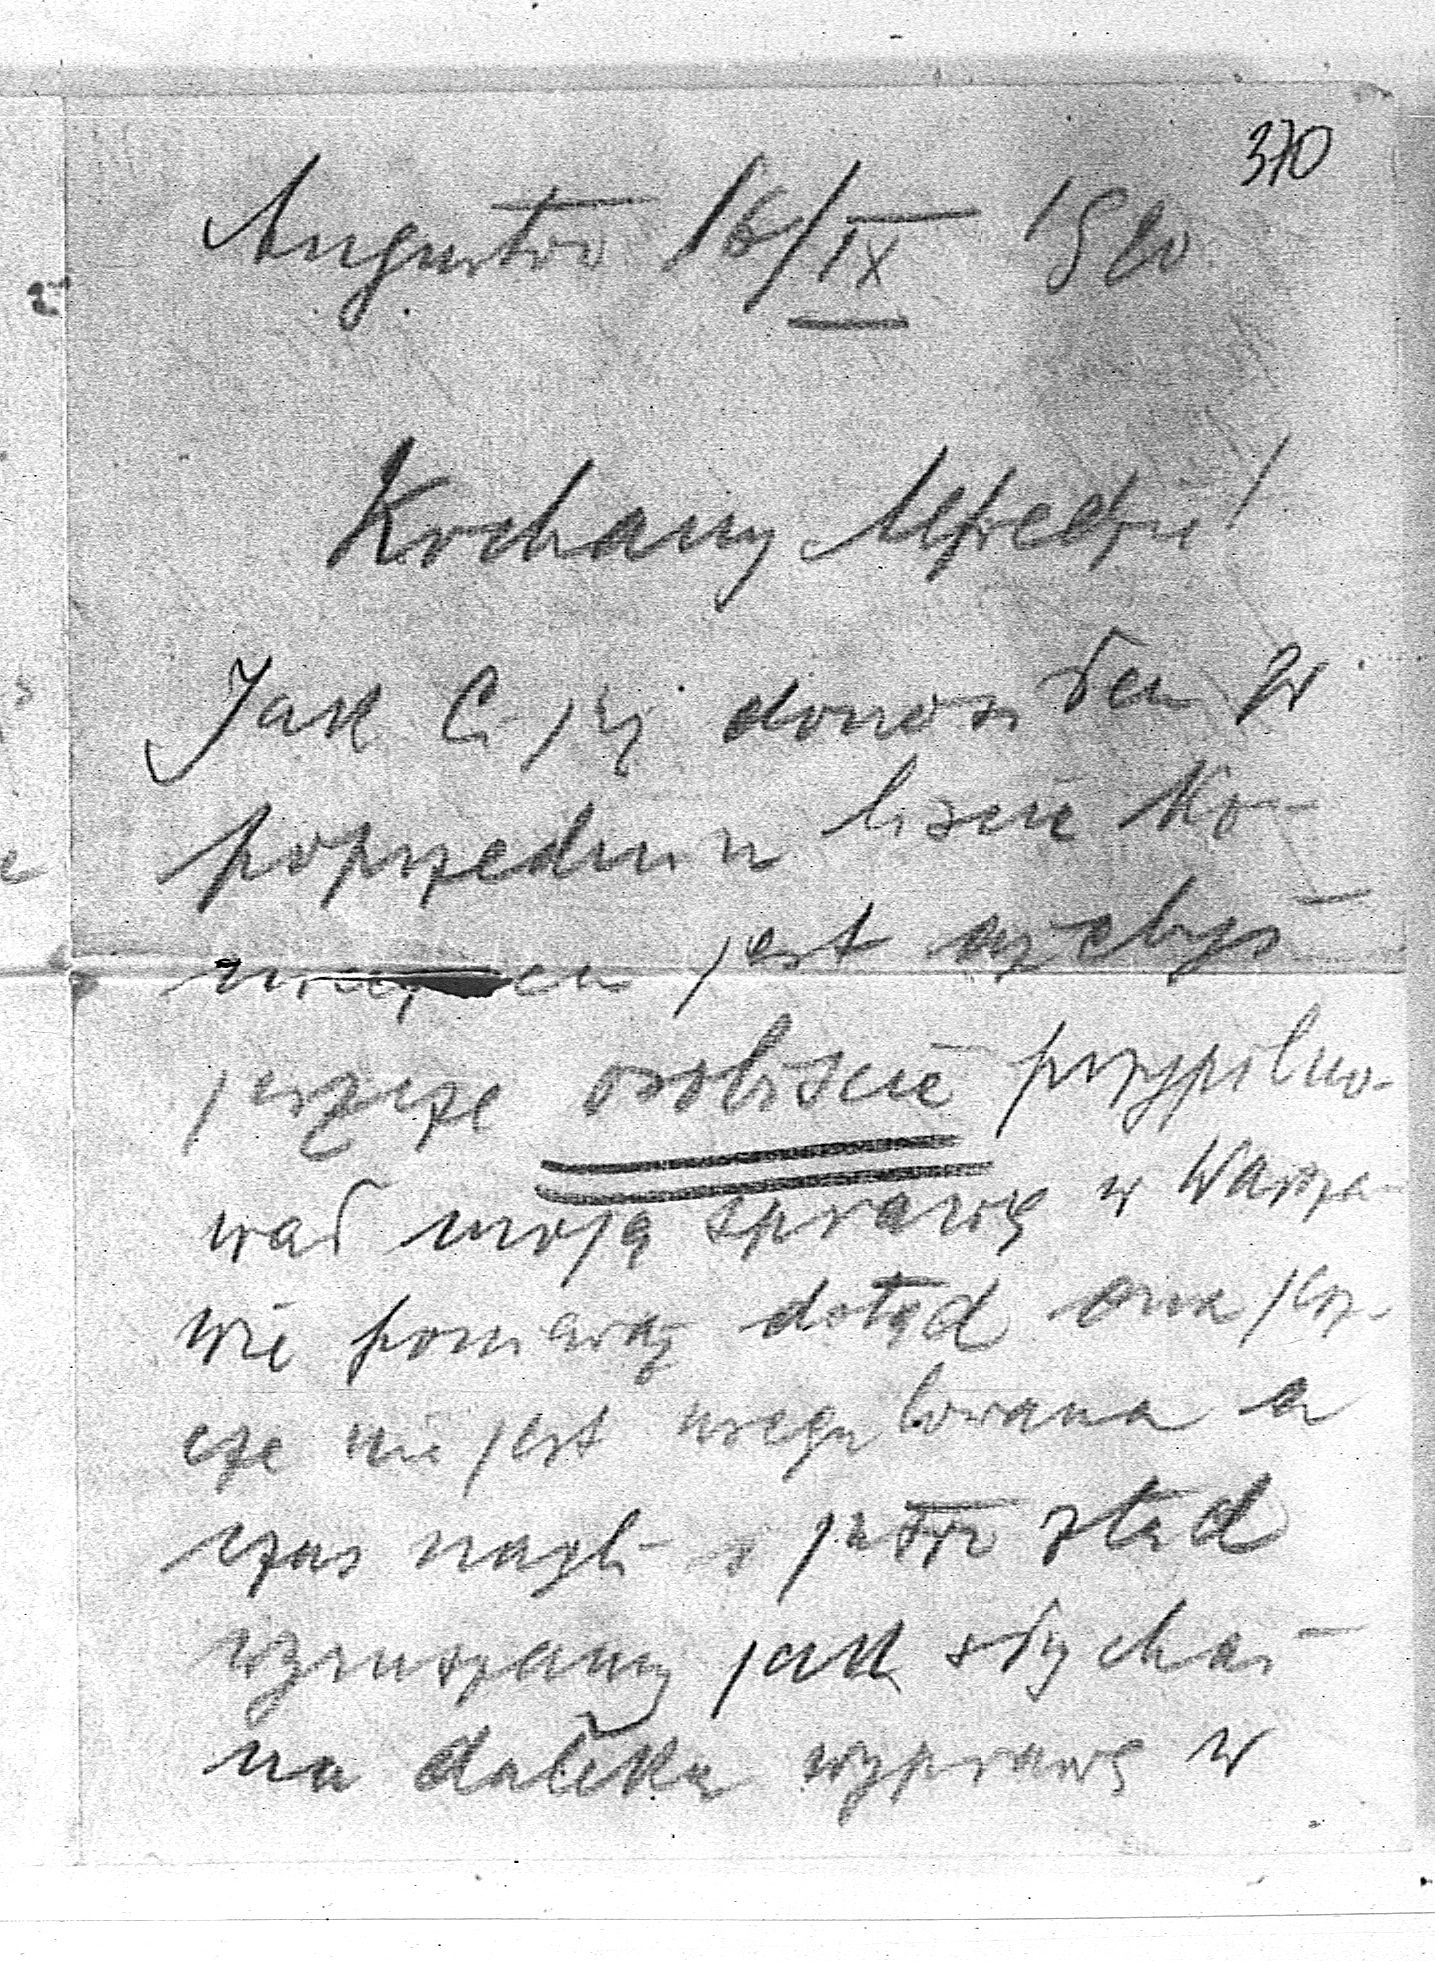 370
Augustów 16/IX 1920
Kochany Alfredzie!
Jak Ci już donosiłem w
poprzednim liście ko-
niecznem jest ażebyś
jeszcze osobiście przypilno-
wał moją sprawę w Warsza-
wie ponieważ dotąd ona jesz-
cze nie jest uregulowana a
czas nagli i jutro stąd
wyruszamy jak słychać
na daleką wyprawę w